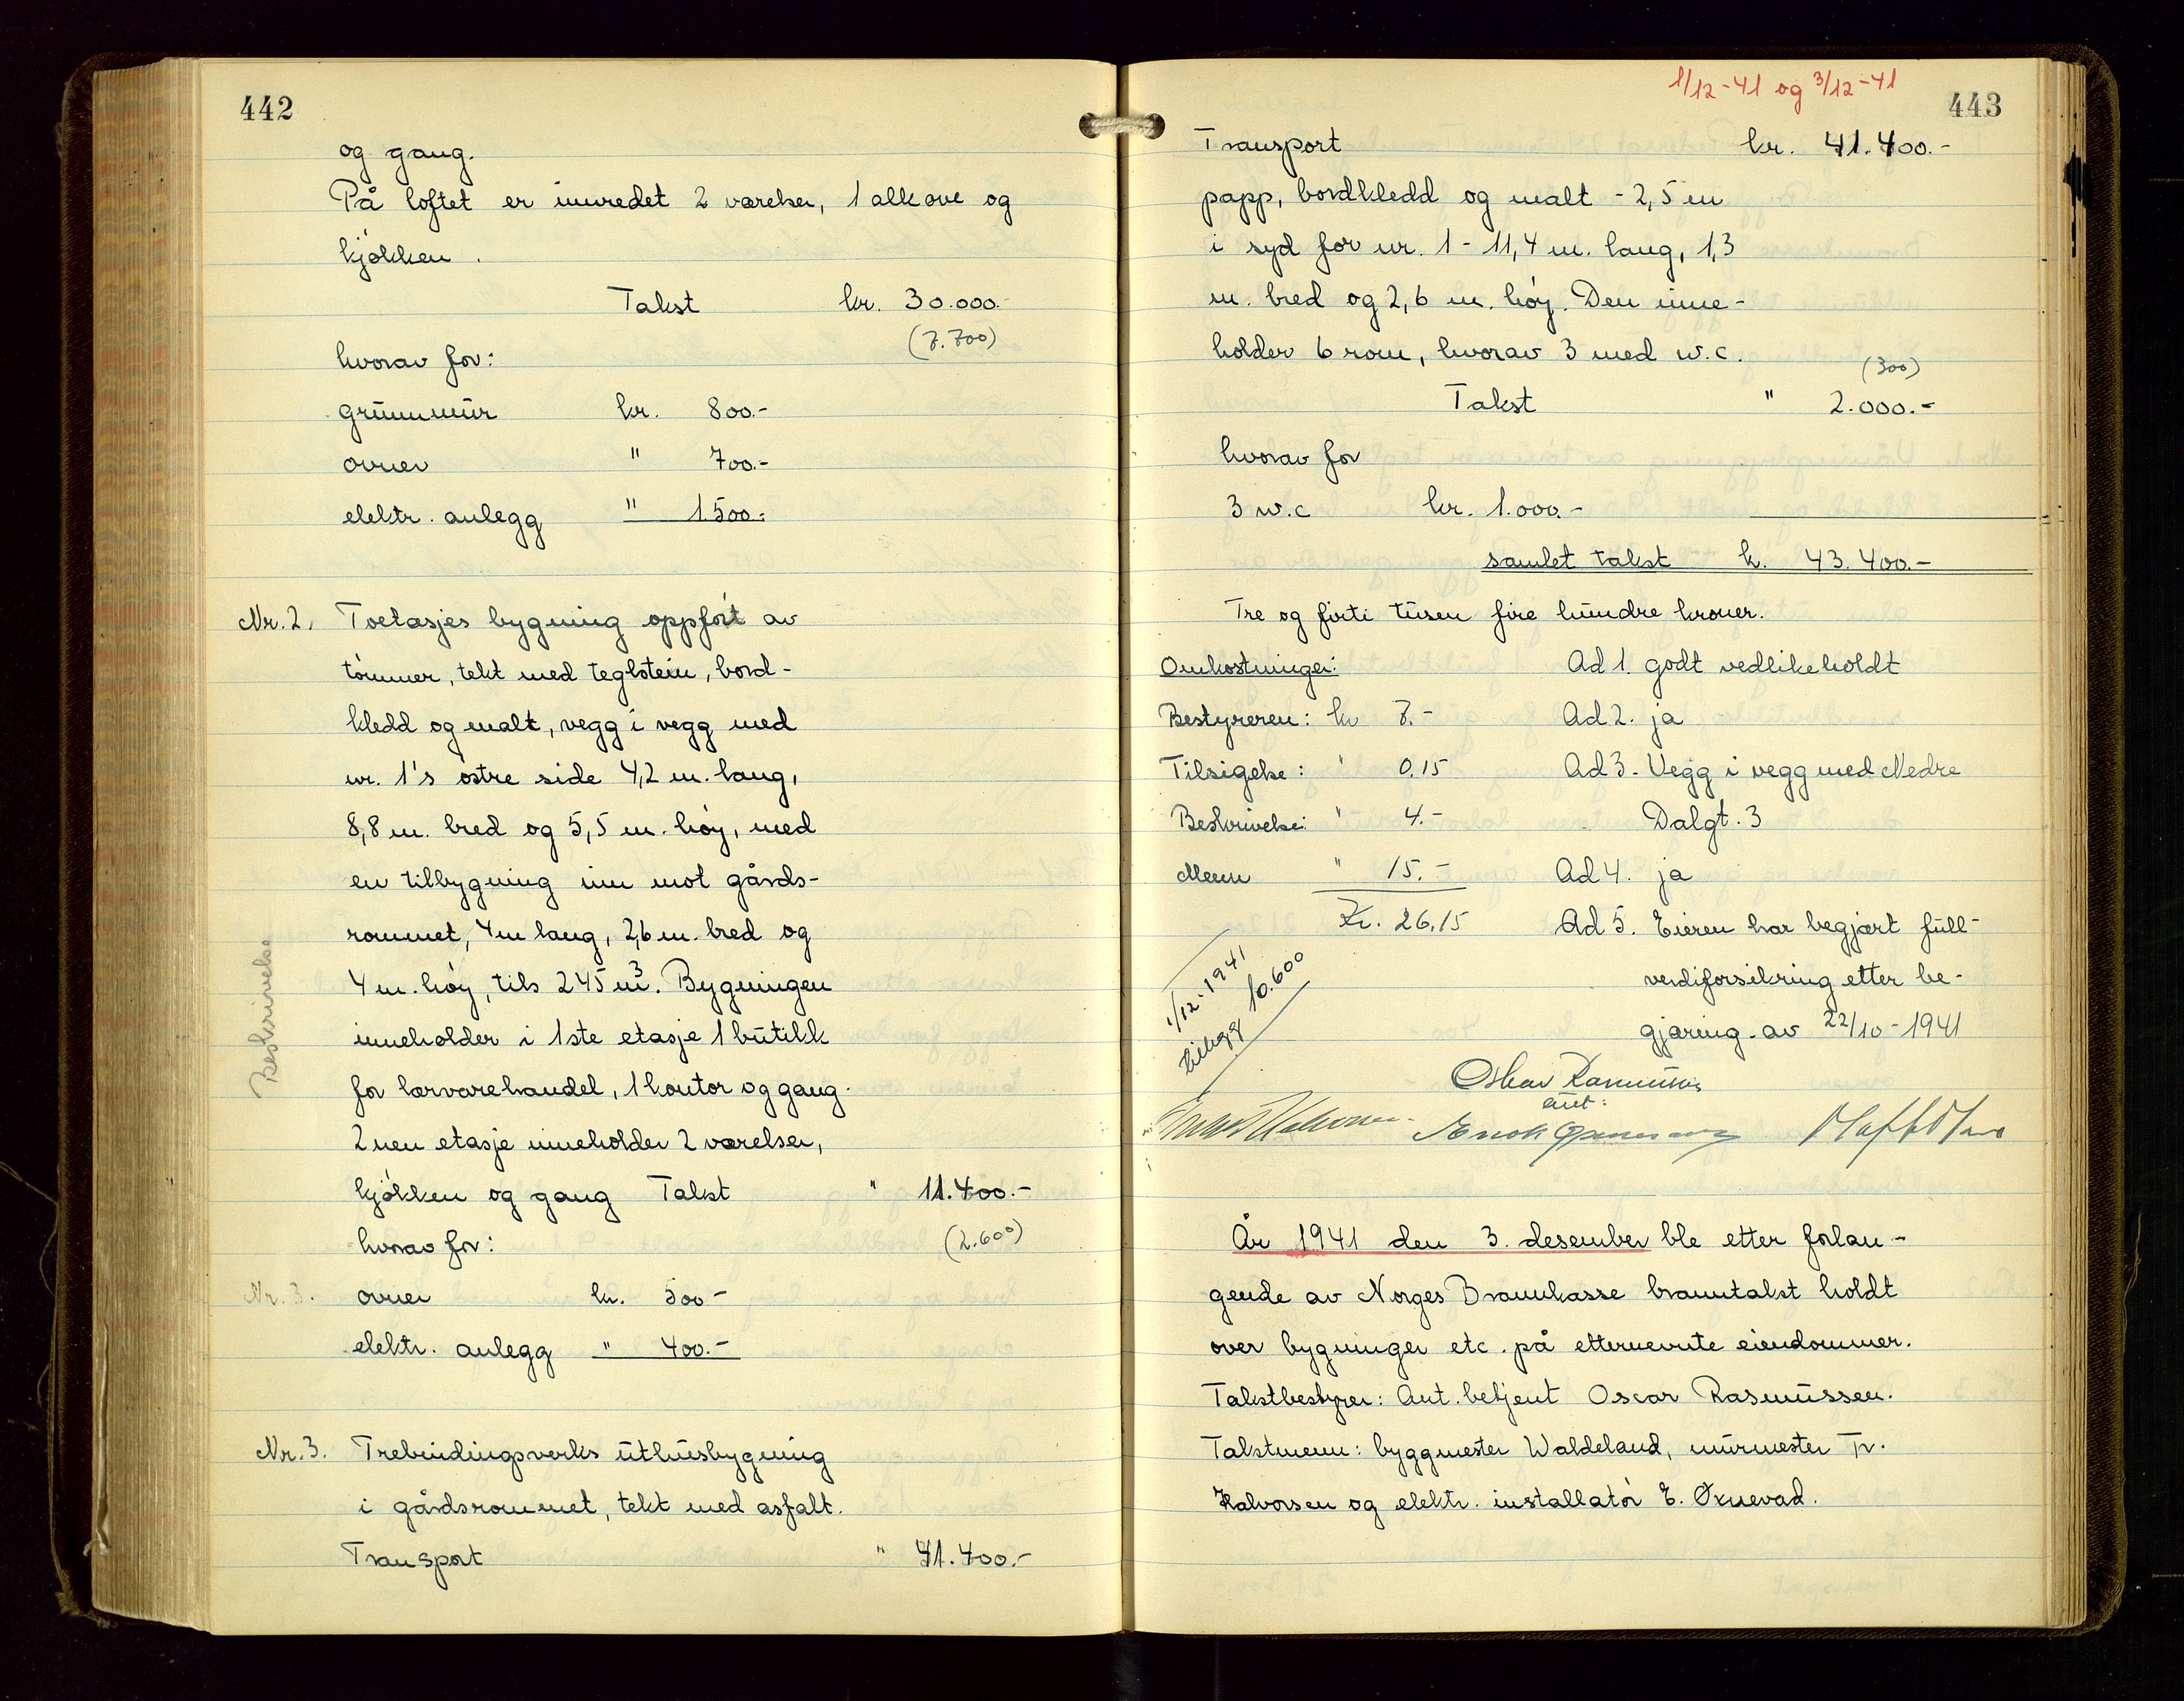 442
og gang.
På loftet er innredet 2 værelser, 1 alkove og
kjökken.
Takst kr. 30.000.-
(7.700)
hvorav for:
grunnmur kr. 800.-
ovner " 700.-
elektr. anlegg " 1.500.-
Nr. 2. Toetasjes bygning oppfört av
tömmer, tekt med teglstein, bord-
kledd og malt, vegg i vegg med
nr. 1's östre side 4,2 m. lang,
8,8 m. bred og 5,5 m. höy, med
en tilbygning inn mot gårds-
rommet, 4 m lang, 2,6 m. bred og
4 m. höy, tils 245 m³. Bygningen
Beskrivelse
inneholder i 1ste etasje 1 butikk
for lærvarehandel, 1 kontor og gang.
2nen etasje inneholder 2 værelser,
kjökken og gang Takst " 11.400.-
hvorav for: (2.600)
Nr. 3. ovner kr. 500-
elektr. anlegg " 400.-
Nr. 3. Trebindingsverks uthusbygning
i gårdsrommet, tekt med asfalt.
Transport " 41.400.-
1/12-41 og 3/12-41
443
Transport kr. 41.400.-
papp, bordkledd og malt - 2,5 m
i syd for nr. 1 - 11,4 m. lang, 1,3
m. bred og 2,6 m. höy. Den inne-
holder 6 rom, hvorav 3 med w.c.
(300)
Takst " 2.000.-
hvorav for
3 w.c kr. 1.000.-
samlet takst k. 43.400.-
Tre og firti tusen fire hundre kroner.
Omkostninger: Ad 1. godt vedlikeholdt
Bestyreren: kr 7.- Ad 2. ja
Tilsigelse: " 0,15 Ad 3. Vegg i vegg med Nedre
Beskrivelse: " 4.- Dalgt. 3
Menn " 15.- Ad 4. ja
Kr. 26,15 Ad 5. Eieren har begjært full-
verdiforsikring etter be-
gjæring av 22/10-1941
1/12-1941
tillegg 10.600
Oskar Rasmussen
aut:
År 1941 den 3. desember ble etter forlan-
gende av Norges Brannkasse branntakst holdt
over bygninger etc. på etternevnte eiendommer.
Takstbestyrer: Aut. betjent Oscar Rasmussen.
Takstmenn: byggmester Waldeland, murmester Tr.
Halvorsen og elektr. installatör E. Øxnevad.